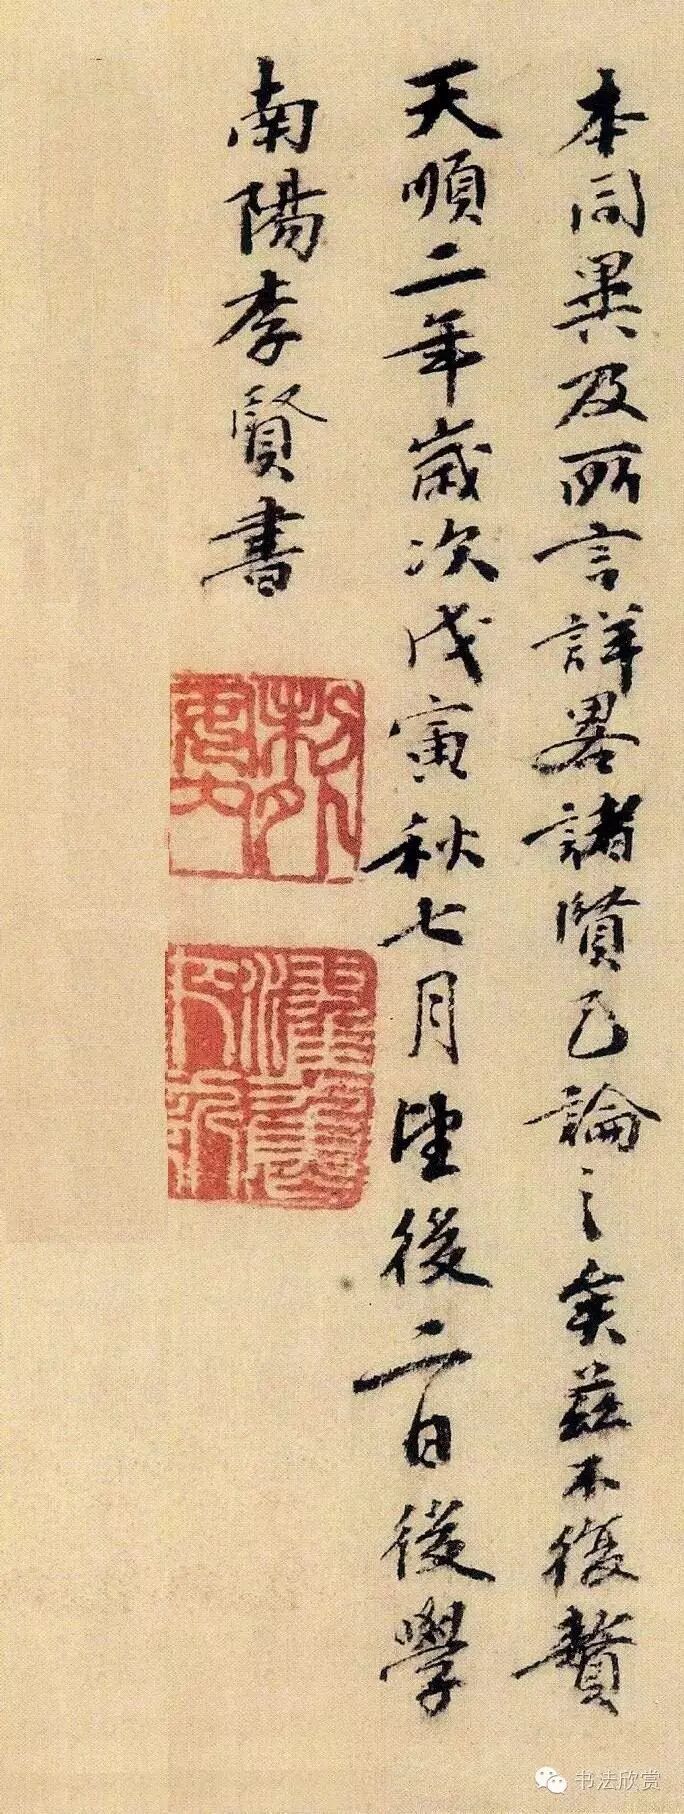 本同異及所言詳畧諸賢已論之矣茲不復贅
天順二年歲次戊寅秋七月望後二日後學
南陽李賢書
书法欣赏